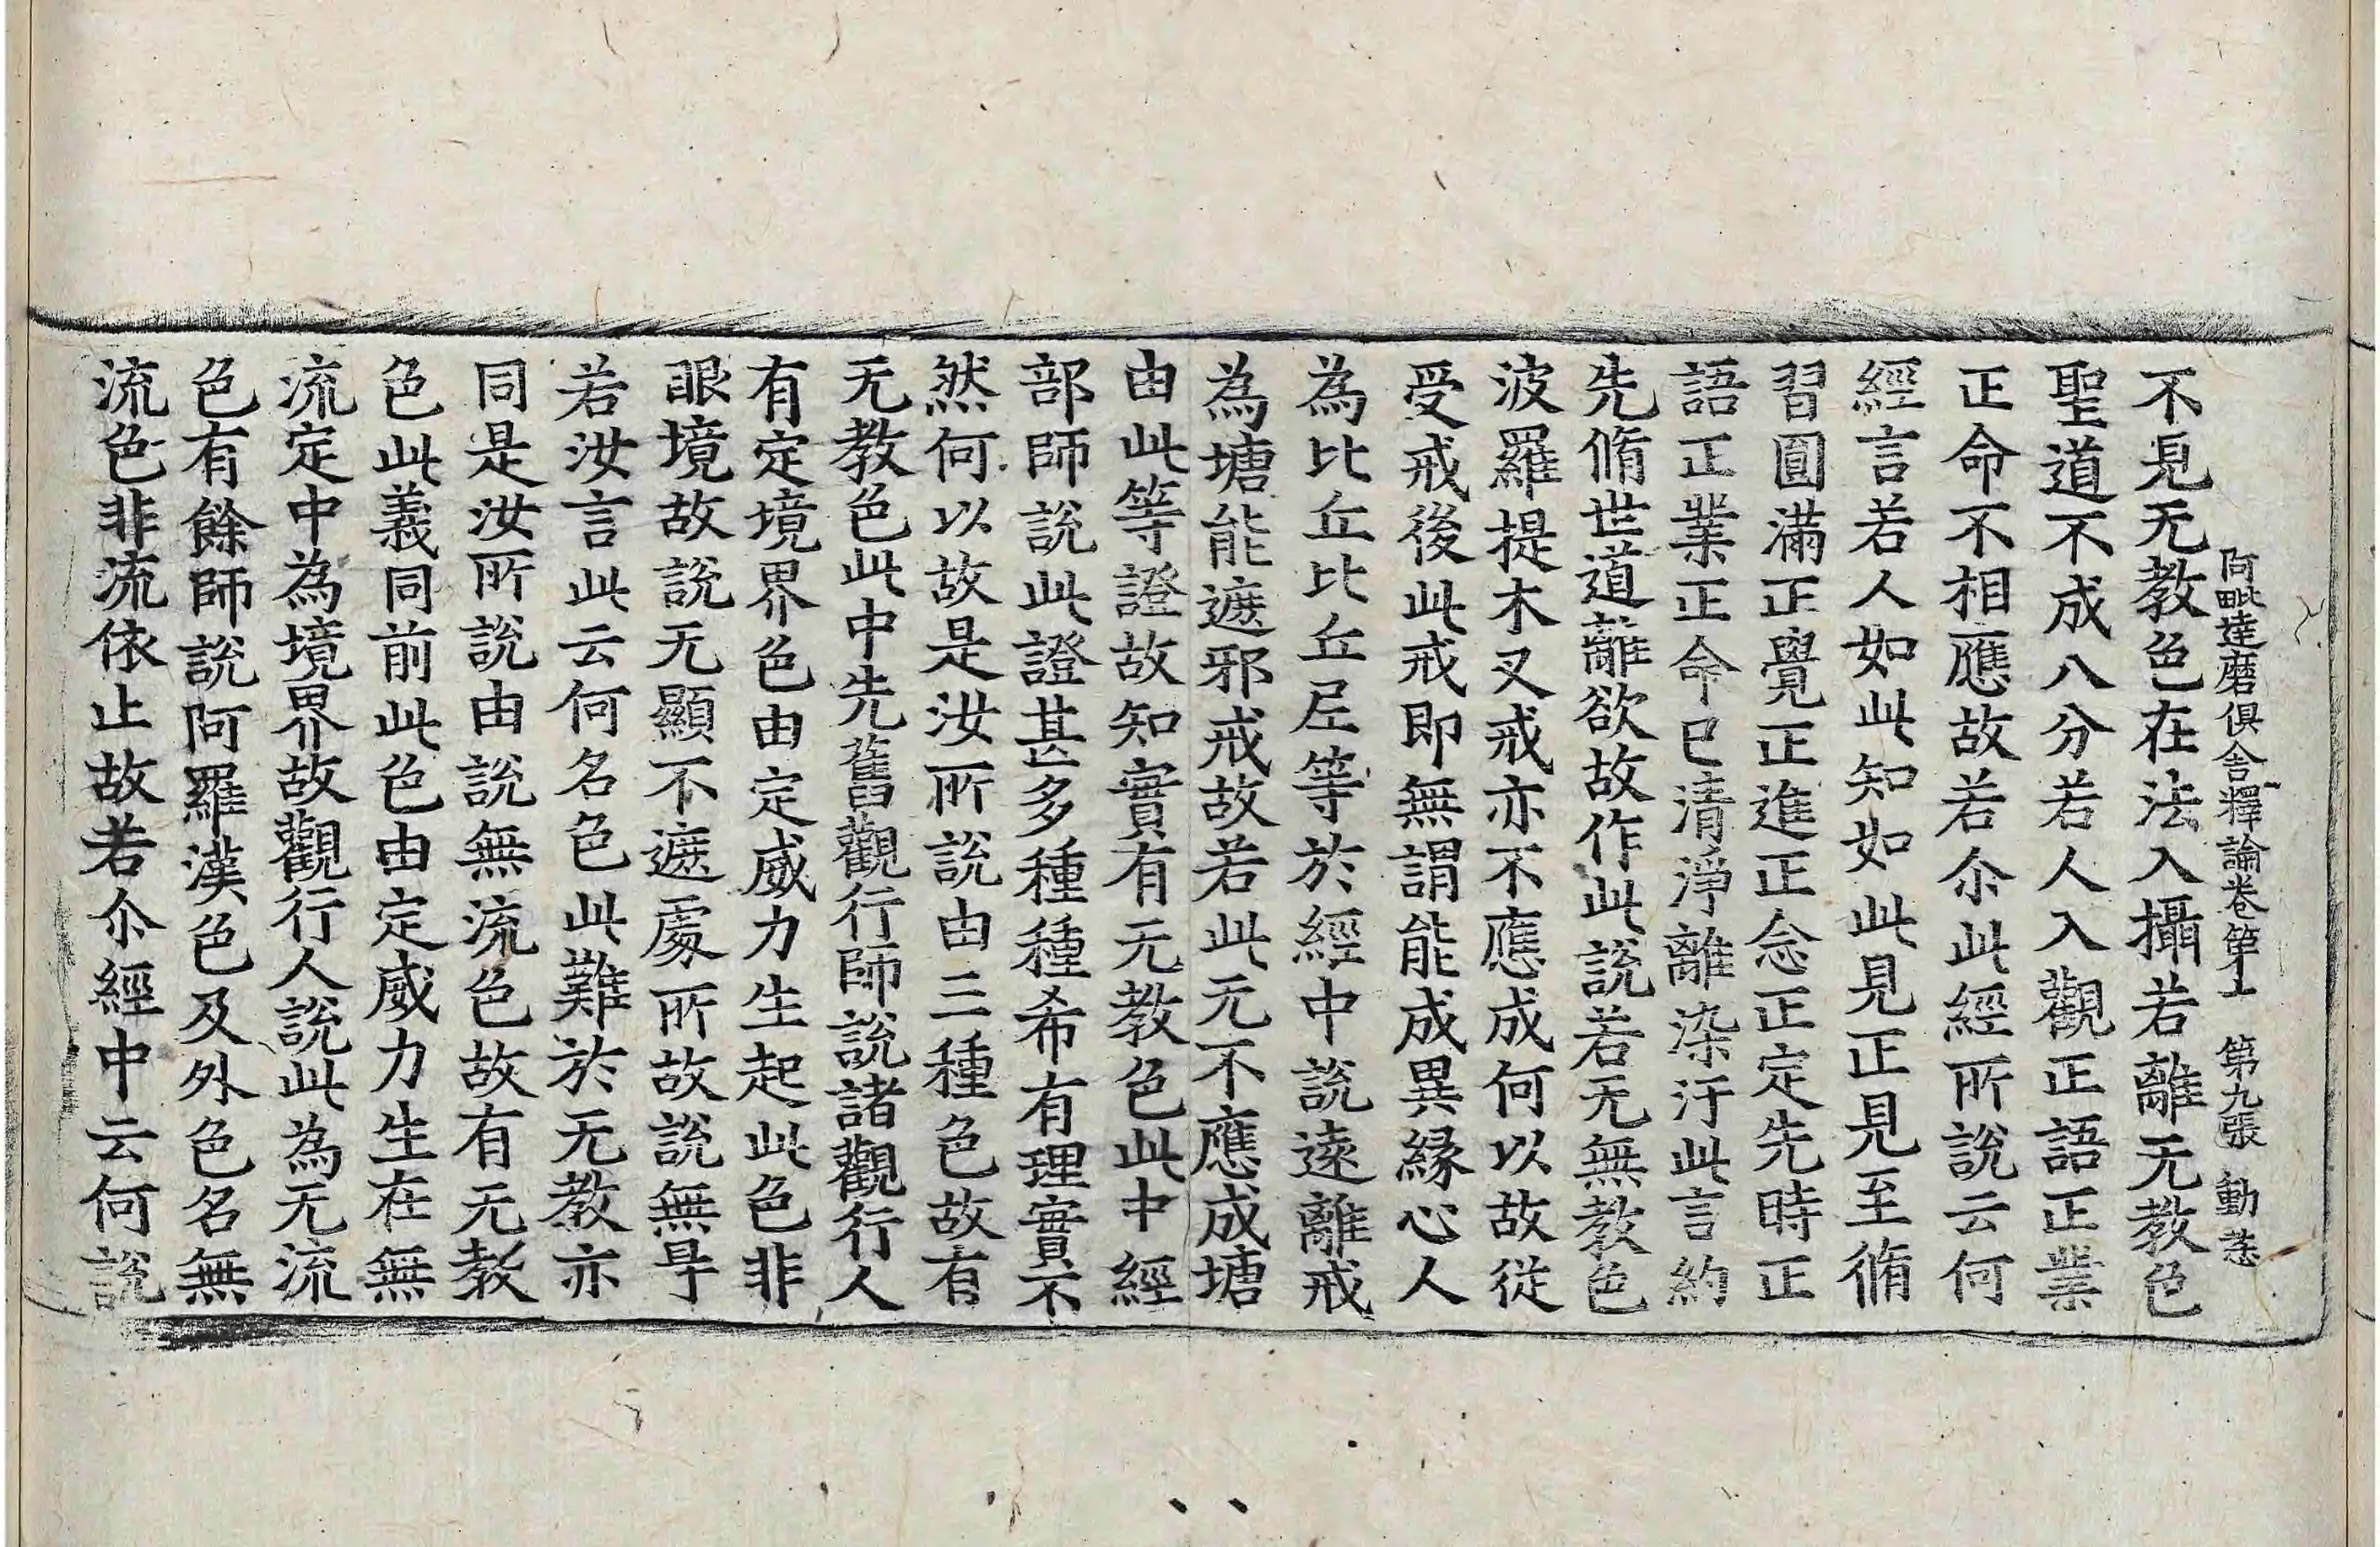 阿毗達磨俱舍釋論卷第十 第九張 動
不見无教色在法入攝若離无教色
聖道不成八分若人入觀正語正業
正命不相應故若尒此經所說云何
經言若人如此知如此見正見至脩
習圓滿正覺正進正念正定先時正
語正業正命已清淨離染汙此言約
先脩世道離欲故作此說若无無教色
波羅提木叉戒亦不應成何以故從
受戒後此戒即無謂能成異緣心人
為比丘比丘尼等於經中說遠離戒
為塘能遮邪戒故若此无不應成塘
由此等證故知實有无教色此中經
部師說此證甚多種種希有理實不
然何以故是汝所說由三種色故有
无教色此中先舊觀行師說諸觀行人
有定境界色由定威力生起此色非
眼境故說无顯不遮處所故說無㝵
若汝言此云何名色此難於无教亦
同是汝所說由說無流色故有无教
色此義同前此色由定威力生在無
流定中為境界故觀行人說此為无流
色有餘師說阿羅漢色及外色名無
流色非流依止故若尒經中云何說